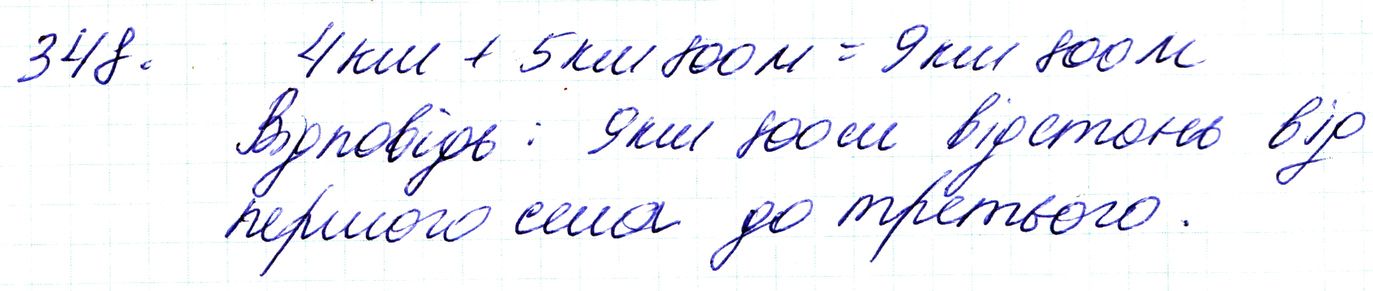 348. 4 км + 5 км 800 м = 9 км 800 м
Відповідь: 9 км 800 м відстань від
першого села до третього.